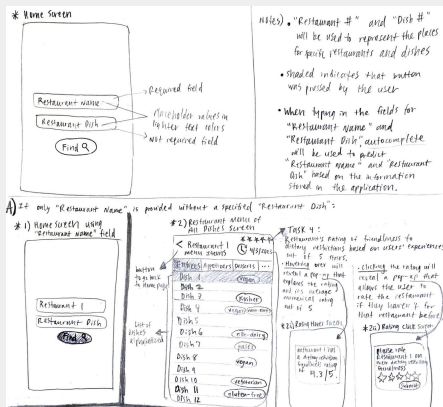 * Home Screen
Restaurant Name
Restaurant Dish
Find
Required field
Placeholder values in
lighter text colors
Not required field
Notes) • "Restaurant #" and "Dish #"
will be used to represent the places
for specific restaurants and dishes
• shaded indicates that button
was pressed by the user
• When typing in the fields for
"Restaurant Name" and
"Restaurant Dish", autocomplete
will be used to predict
"Restaurant name" and "Restaurant
Dish" based on the information
stored in the application.
A) If only "Restaurant Name" is provided without a specified "Restaurant Dish":
* 1) Home Screen using
"Restaurant Name" field
Restaurant 1
Restaurant Dish
Find
* 2) Restaurant Menu of
All Dishes Screen
button
to go back
to home page
List of
dishes
alphabetized
< Restaurant 1
menu items
Entrees Appetizers Desserts ...
Dish 1
Dish 2
Dish 3
Dish 4
Dish 5
Dish 6
Dish 7
Dish 8
Dish 9
Dish 10
Dish 11
Dish 12
vegan
kosher
non-dairy
vegan
vegetarian
gluten-free
TASK 4:
Restaurant's rating of friendliness to
dietary restrictions based on users' experiences
out of 5 stars.
• Hovering over will
reveal a pop-up that
explains the rating
and its average
numerical rating
out of 5
• clicking the rating will
reveal a pop-up that
allows the user to
rate the restaurant
if they haven't for
that restaurant before
Rating Hover Screen
Restaurant 1 has
a dietary restriction
of
4.3/5
Rating Click Screen
Please rate
Restaurant 1 on
friendliness
Submit